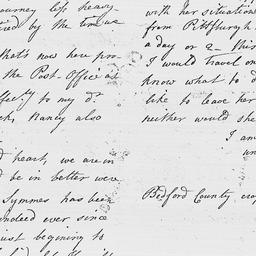 journey left heavy
by the time we
that's now here pro
the Post-Office at
to my d.
Nancy also
heart, we are in
be in better were
Symmes has been
indeed ever since
just begining to
with her situation
from Pittsburgh
a day or 2 — this
I would travel on
know what to d
like to leave her
neither would she
I am
un
Bedford County